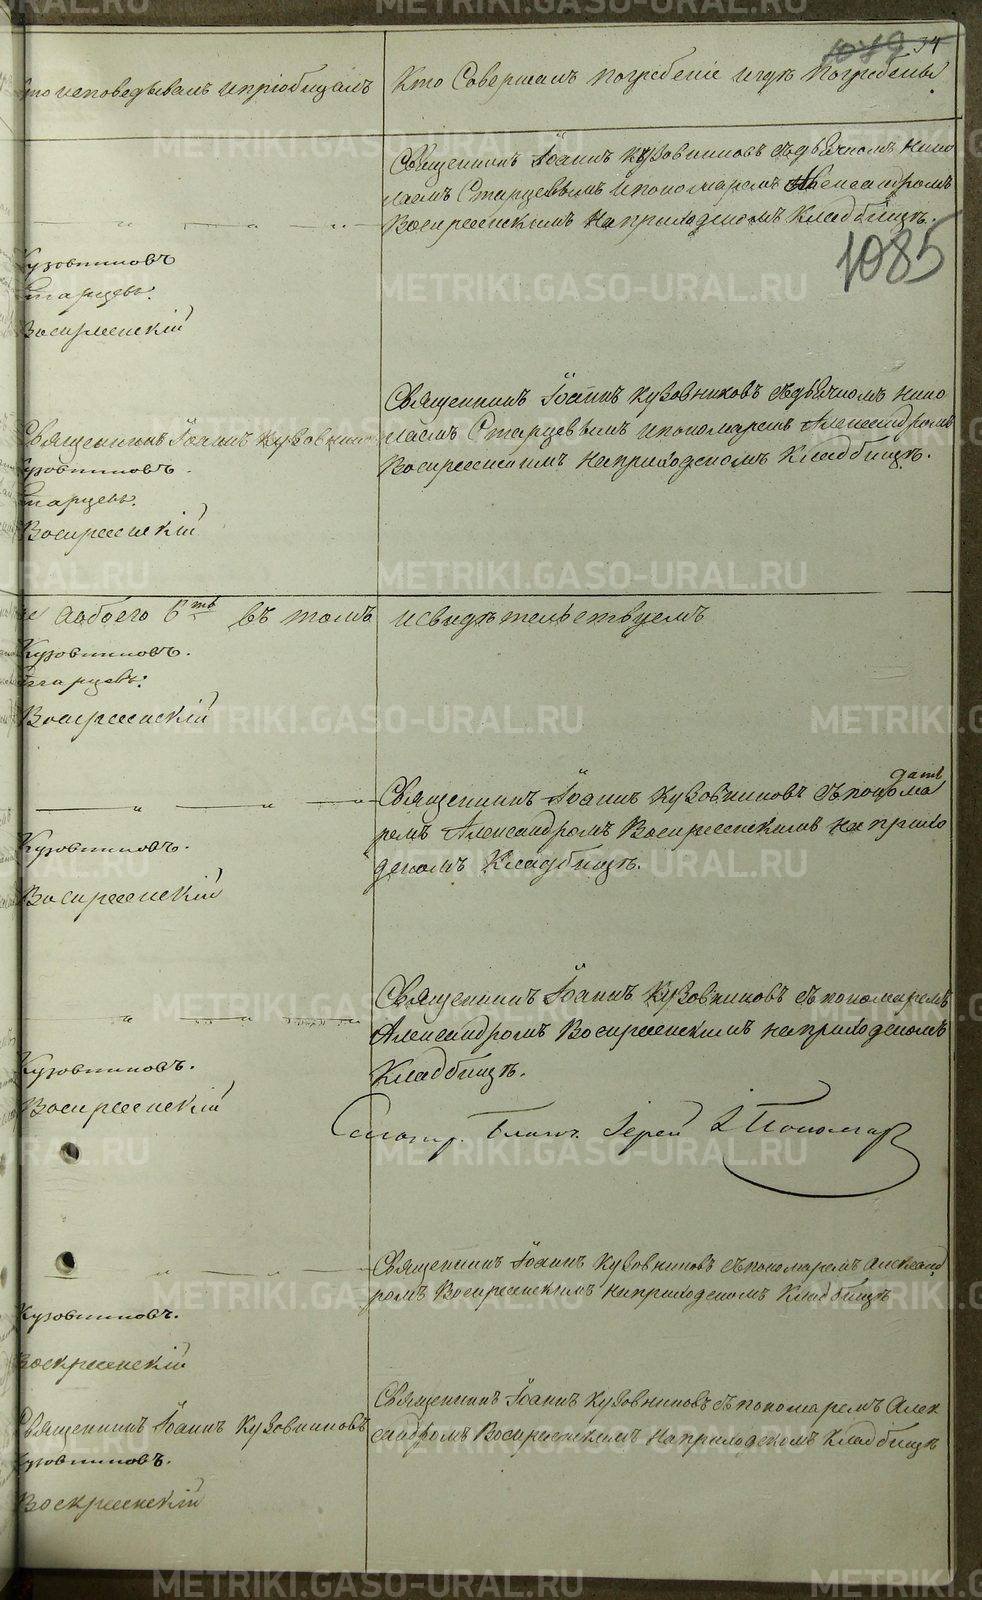 1089 34
Кто исповедывалъ и пріобщалъ
Кто Совершалъ погребеніе и гдѣ погребены
Священникъ Іоаннъ Кузовниковъ съ дьячкомъ Нико
лаемъ Старцевымъ и пономаремъ Александромъ
Воскресенскимъ на приходскомъ Кладбищѣ.
1085
Кузовниковъ
Старцевъ.
Воскресенскій
Священникъ Іоаннъ Кузовников
Кузовниковъ.
Старцевъ.
Воскресенскій
Священникъ Іоаннъ Кузовниковъ съ дьячкомъ Нико
лаемъ Старцевымъ и пономаремъ Александромъ
Воскресенскимъ на приходскомъ Кладбищѣ.
а обоего 6ть въ томъ и свидѣтельствуемъ
Кузовниковъ.
Старцевъ.
Воскресенскій
Священникъ Іоаннъ Кузовниковъ съ понома
ремъ Александромъ Воскресенскимъ на прихо
дскомъ Кладбищѣ.
Кузовниковъ.
Воскресенскій
Священникъ Іоаннъ Кузовниковъ съ пономаремъ
Александромъ Воскресенскимъ на приходскомъ
Кладбищѣ.
Кузовниковъ.
Воскресенскій
Смотр. Благоч. Іерей І Пономар
Священникъ Іоаннъ Кузовниковъ съ пономаремъ Александ
ромъ Воскресенскимъ на приходскомъ Кладбищѣ
Кузовниковъ.
Воскресенскій
Священникъ Іоаннъ Кузовниковъ
Кузовниковъ.
Воскресенскій
Священникъ Іоаннъ Кузовниковъ съ пономаремъ Алек
сандромъ Воскресенскимъ на приходскомъ Кладбищѣ
METRIKI.GASO-URAL.RU